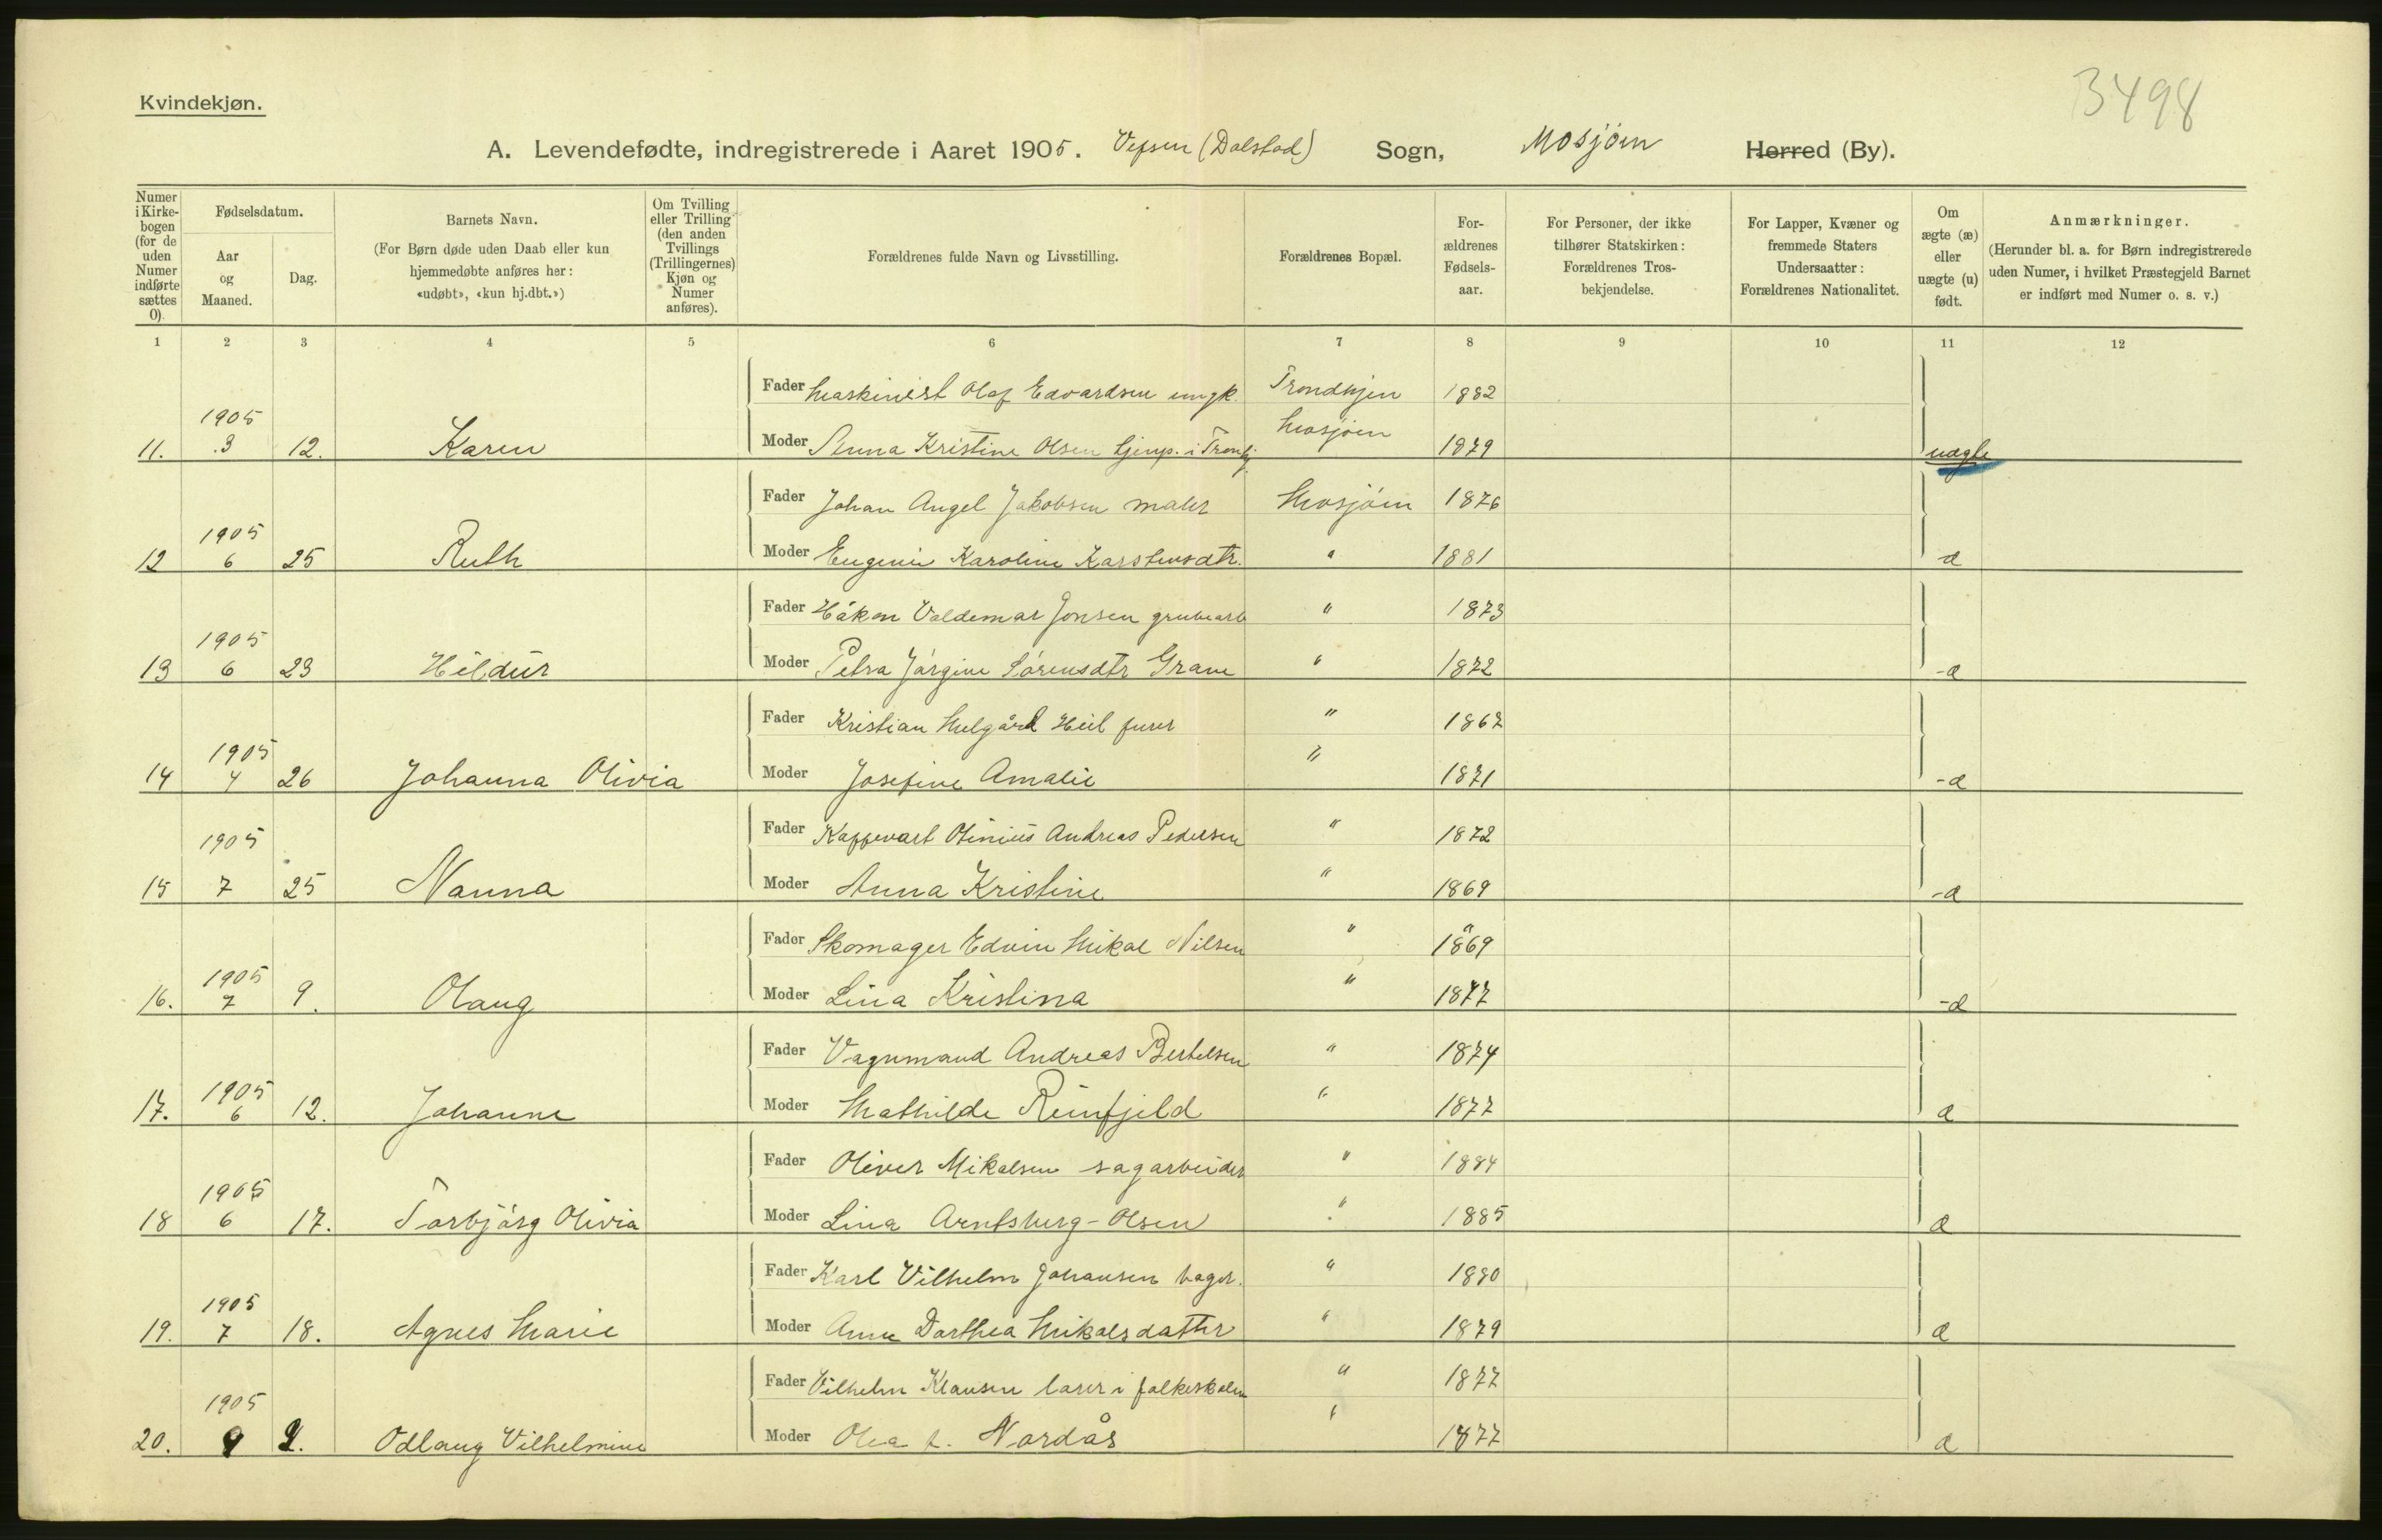 3498
Kvindekjøn.
A. Levendefødte, indregistrerede i Aaret 1905. Vefsen (Dolstad) Sogn, Mosjøen Herred (By).
Numer i Kirkebogen (for de uden Numer indførte sættes 0).
Fødselsdatum.
Aar og Maaned.
Dag.
Barnets Navn.
(For Børn døde uden Daab eller kun hjemmedøbte anføres her: «udøbt», «kun hj.dbt.»)
Om Tvilling eller Trilling (den anden Tvillings (Trillingernes) Kjøn og Numer anføres).
Forældrenes fulde Navn og Livsstilling.
Forældrenes Bopæl.
Forældrenes Fødselsaar.
For Personer, der ikke tilhører Statskirken: Forældrenes Trosbekjendelse.
For Lapper, Kvæner og fremmede Staters Undersaatter: Forældrenes Nationalitet.
Om ægte (æ) eller uægte (u) født.
Anmærkninger.
(Herunder bl. a. for Børn indregistrerede uden Numer, i hvilket Præstegjeld Barnet er indført med Numer o. s. v.)
1 2 3 4 5 6 7 8 9 10 11 12
Fader Maskinist Olaf Edvardsen ungk. Trondhjem 1882
11. 1905 3 12. Karen Moder Anna Kristine Olsen tjenp. i Trondhj. Mosjøen 1879 uægte
Fader Johan Angel Jakobsen maler Mosjøen 1876
12 1905 6 25 Ruth Moder Eugenie Karoline Karstensdtr. " 1881 æ
Fader Håkon Valdemar Jonsen grubearb " 1873
13 1905 6 23 Hildur Moder Petra Jørgine Sørensdtr Grane " 1872 æ
Fader Kristian Melgård Heil furer " 1867
14 1905 4 26 Johanna Olivia Moder Josefine Amalie " 1871 æ
Fader Otinius Andreas Pedersen " 1872
15 1905 7 25 Nanna Moder Anna Kristine " 1869 æ
Fader Skomager Edvin Mikal Nilsen " 1869
16. 1905 7 9. Olaug Moder Lina Kristina " 1877 æ
Fader Vognmand Andreas Bertelsen " 1874
17. 1905 6 12. Johanne Moder Mathilde Reinfjeld " 1877 æ
Fader Oliver Mikalsen sagarbeider " 1884
18 1905 6 17. Torbjørg Olivia Moder Lina Arntsberg-Olsen " 1885 æ
Fader Karl Vilhelm Johansen bager. " 1880
19. 1905 7 18. Agnes Marie Moder Anne Dorthea Mikalsdatter " 1879 æ
Fader Vilhelm Klausen lærer i folkeskolen " 1877
20. 1905 9 2. Odlaug Vilhelmine Moder Olea f. Nordås " 1877 æ